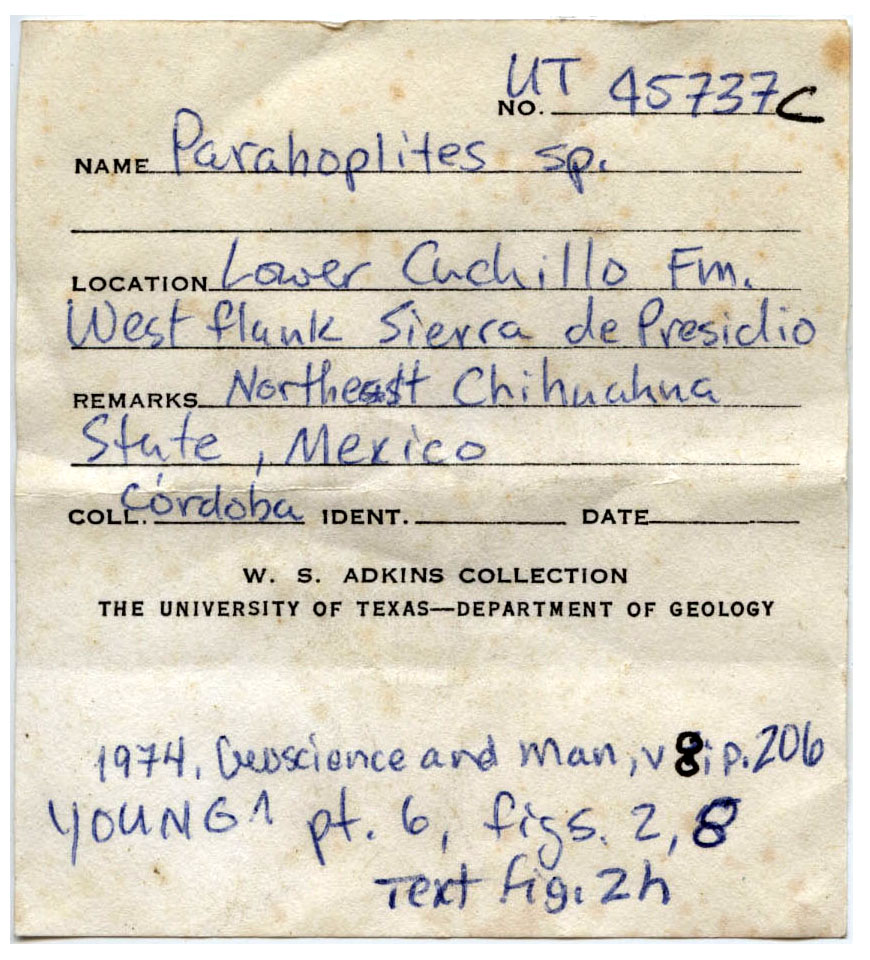 NO. UT 45737C
NAME Parahoplites sp.
LOCATION Lower Cuchillo Fm.
West flank Sierra de Presidio
REMARKS Northeast Chihuahua
State, Mexico
COLL. Córdoba IDENT. DATE
W. S. ADKINS COLLECTION
THE UNIVERSITY OF TEXAS—DEPARTMENT OF GEOLOGY
1974, Geoscience and Man, v 8; p. 206
YOUNG ^ pt. 6, figs. 2, 8
Text fig. 2h